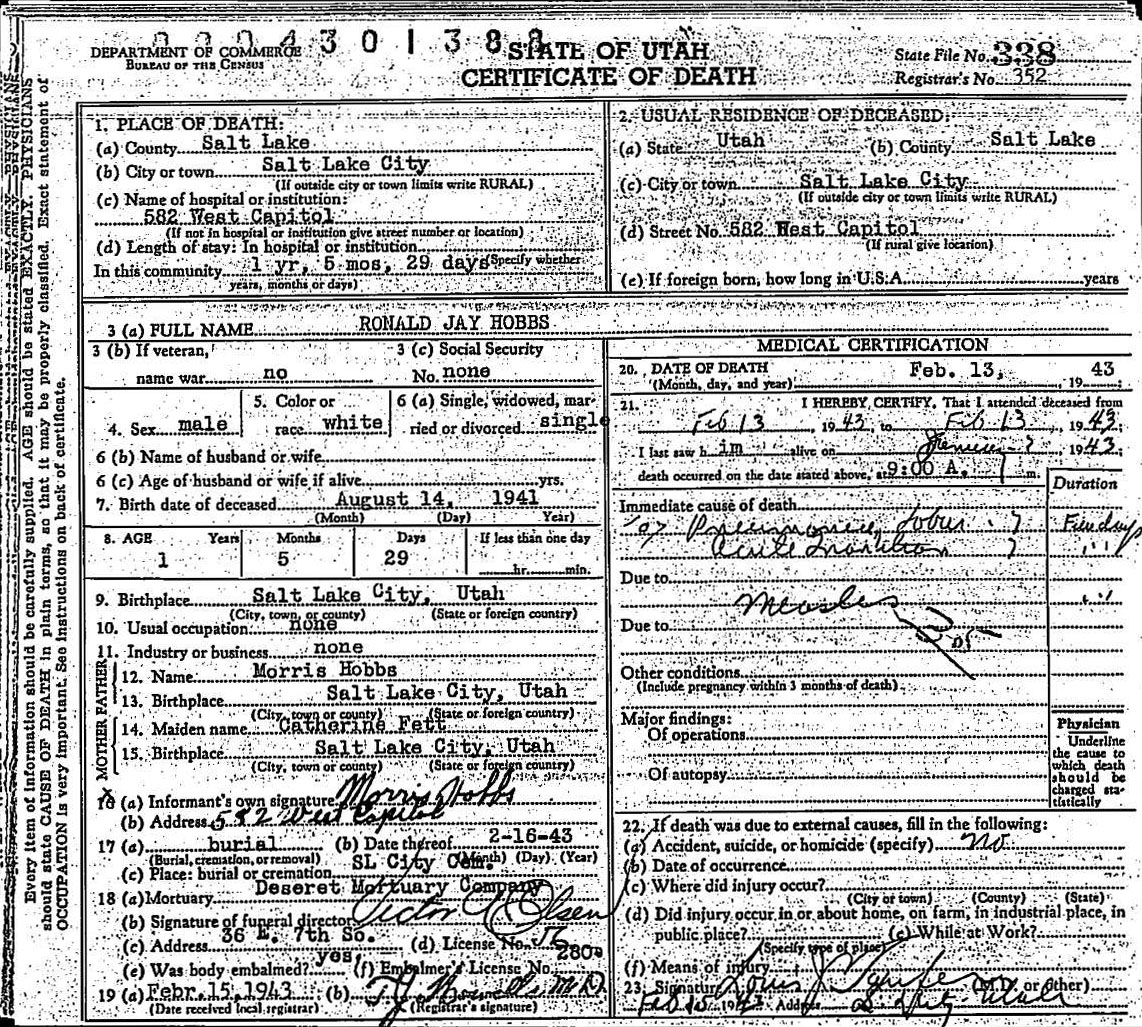 DEPARTMENT OF COMMERCE
BUREAU OF THE CENSUS
4301388
STATE OF UTAH
CERTIFICATE OF DEATH
State File No. 338
Registrar's No. 352
Every item of information should be carefully supplied. AGE should be stated EXACTLY. PHYSICIANS
should state CAUSE OF DEATH in plain terms, so that it may be properly classified. Exact statement of
OCCUPATION is very important. See instructions on back of certificate.
1. PLACE OF DEATH:
(a) County Salt Lake
(b) City or town Salt Lake City
(If outside city or town limits write RURAL)
(c) Name of hospital or institution:
582 West Capitol
(If not in hospital or institution give street number or location)
(d) Length of stay: In hospital or institution
In this community 1 yr, 5 mos, 29 days (Specify whether
years, months or days)
2. USUAL RESIDENCE OF DECEASED:
(a) State Utah (b) County Salt Lake
(c) City or town Salt Lake City
(If outside city or town limits write RURAL)
(d) Street No. 582 West Capitol
(If rural give location)
(e) If foreign born, how long in U.S.A. years
3 (a) FULL NAME RONALD JAY HOBBS
3 (b) If veteran, 3 (c) Social Security
name war no No. none
4. Sex male 5. Color or race white 6 (a) Single, widowed, married or divorced single
6 (b) Name of husband or wife
6 (c) Age of husband or wife if alive yrs.
7. Birth date of deceased August 14, 1941
(Month) (Day) Year)
8. AGE Years Months Days If less than one day
1 5 29 hr. min.
9. Birthplace Salt Lake City, Utah
(City, town, or county) (State or foreign country)
10. Usual occupation none
11. Industry or business none
FATHER
12. Name Morris Hobbs
13. Birthplace Salt Lake City, Utah
(City, town or county) (State or foreign country)
MOTHER
14. Maiden name Catherine Fett
15. Birthplace Salt Lake City, Utah
(City, town or county) (State or foreign country)
16 (a) Informant's own signature Morris Hobbs
(b) Address 582 West Capitol
17 (a) burial (b) Date thereof 2-16-43
(Burial, cremation, or removal) (Month) (Day) (Year)
(c) Place: burial or cremation SL City Cem.
18 (a) Mortuary Deseret Mortuary Company
(b) Signature of funeral director Victor Olsen
(c) Address 36 E. 7th So. (d) License No.
(e) Was body embalmed? yes, (f) Embalmer's License No. 280
19 (a) Febr. 15, 1943 (b) M.D.
(Date received local registrar) (Registrar's signature)
MEDICAL CERTIFICATION
20. DATE OF DEATH Feb. 13, 19 43
(Month, day, and year)
21. I HEREBY CERTIFY, That I attended deceased from
Feb 13, 1943, to Feb 13, 1943;
I last saw h im alive on 1943
death occurred on the date stated above, at 9:00 A. m.
Duration
Immediate cause of death
Pneumonia Lobar Few days
Acute
Due to
Measles
Due to
Other conditions
(Include pregnancy within 3 months of death)
Major findings:
Of operations
Of autopsy
Physician
Underline
the cause to
which death
should be
charged sta-
tistically
22. If death was due to external causes, fill in the following:
(a) Accident, suicide, or homicide (specify) No
(b) Date of occurrence
(c) Where did injury occur?
(City or town) (County) (State)
(d) Did injury occur in or about home, on farm, in industrial place, in
public place? (e) While at Work?
(Specify type of place)
(f) Means of injury
23. Signature Louis J. (M.D. or other)
Feb 15 1943 Address Utah